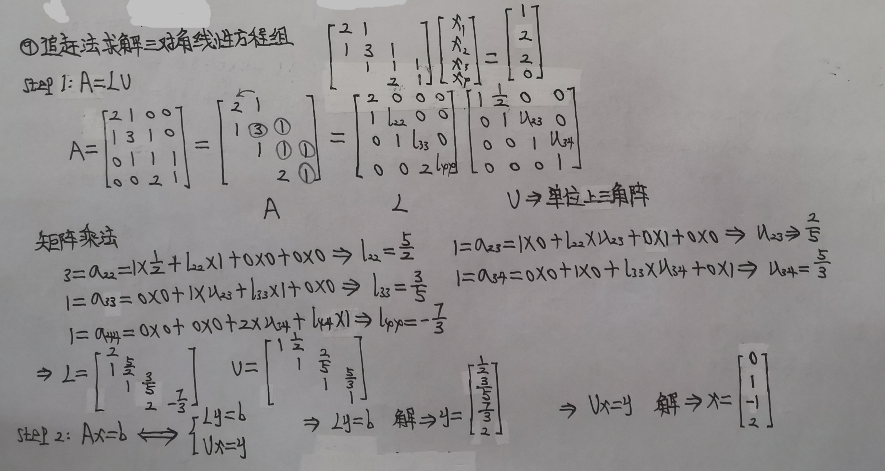 ④追赶法求解三对角线性方程组 [2 1; 1 3 1; 1 1 1; 2 1][x₁; x₂; x₃; x₄]=[1; 2; 2; 0]
step 1: A=LU
A=[2 1 0 0; 1 3 1 0; 0 1 1 1; 0 0 2 1]=[2 1; 1 ③ ①; 1 ① ①; 2 ①]=[2 0 0 0; 1 l₂₂ 0 0; 0 1 l₃₃ 0; 0 0 2 l₄₄][1 1/2 0 0; 0 1 u₂₃ 0; 0 0 1 u₃₄; 0 0 0 1]
A L U⇒单位上三角阵
矩阵乘法
3=a₂₂=1×1/2+l₂₂×1+0×0+0×0⇒l₂₂=5/2 1=a₂₃=1×0+l₂₂×u₂₃+0×1+0×0⇒u₂₃⇒2/5
1=a₃₃=0×0+1×u₂₃+l₃₃×1+0×0⇒l₃₃=3/5 1=a₃₄=0×0+1×0+l₃₃×u₃₄+0×1⇒u₃₄=5/3
1=a₄₄=0×0+0×0+2×u₃₄+l₄₄×1⇒l₄₄=-7/3
⇒L=[2; 1 5/2; 1 3/5; 2 -7/3] U=[1 1/2; 1 2/5; 1 5/3; 1]
step 2: Ax=b⇔{Ly=b; Ux=y ⇒Ly=b 解⇒y=[1/2; 3/5; 7/3; 2] ⇒Ux=y 解⇒x=[0; 1; -1; 2]